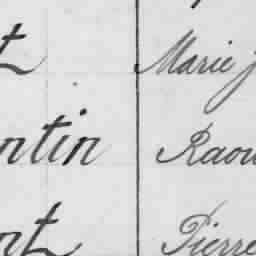 t Marie J
ntin Raou
nt Pierre